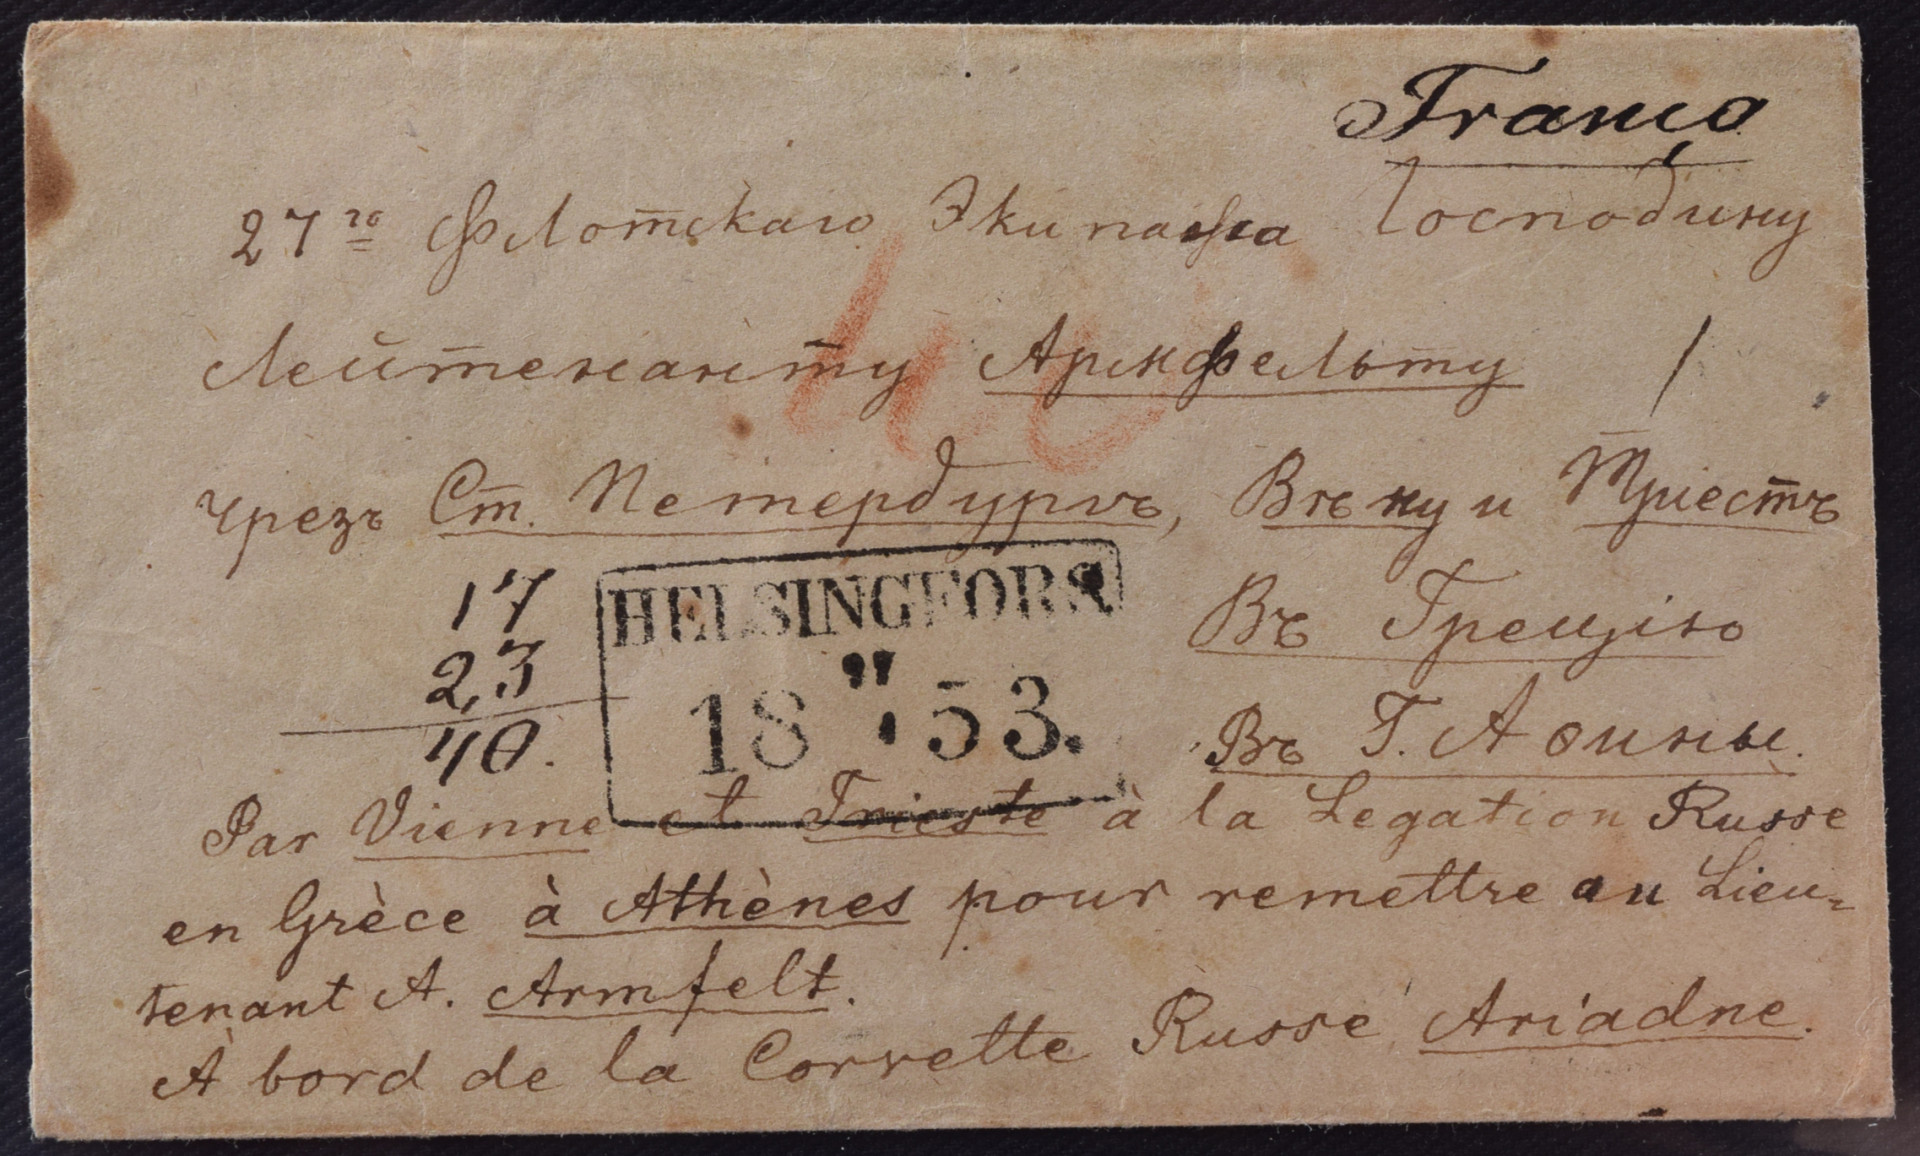 Franco
27го Флотскаго Экипажа Господину
Лейтенанту Армфельту
Чрезъ Ст. Петербургъ, Вѣну и Тріестъ
17
23
40.
HELSINGFORS
18 53.
Въ Грецію
Въ Г. Аѳины.
Par Vienne et Trieste à la Legation Russe
en Grèce à Athènes pour remettre au Lieu-
tenant A. Armfelt.
À bord de la Corvette Russe Ariadne.